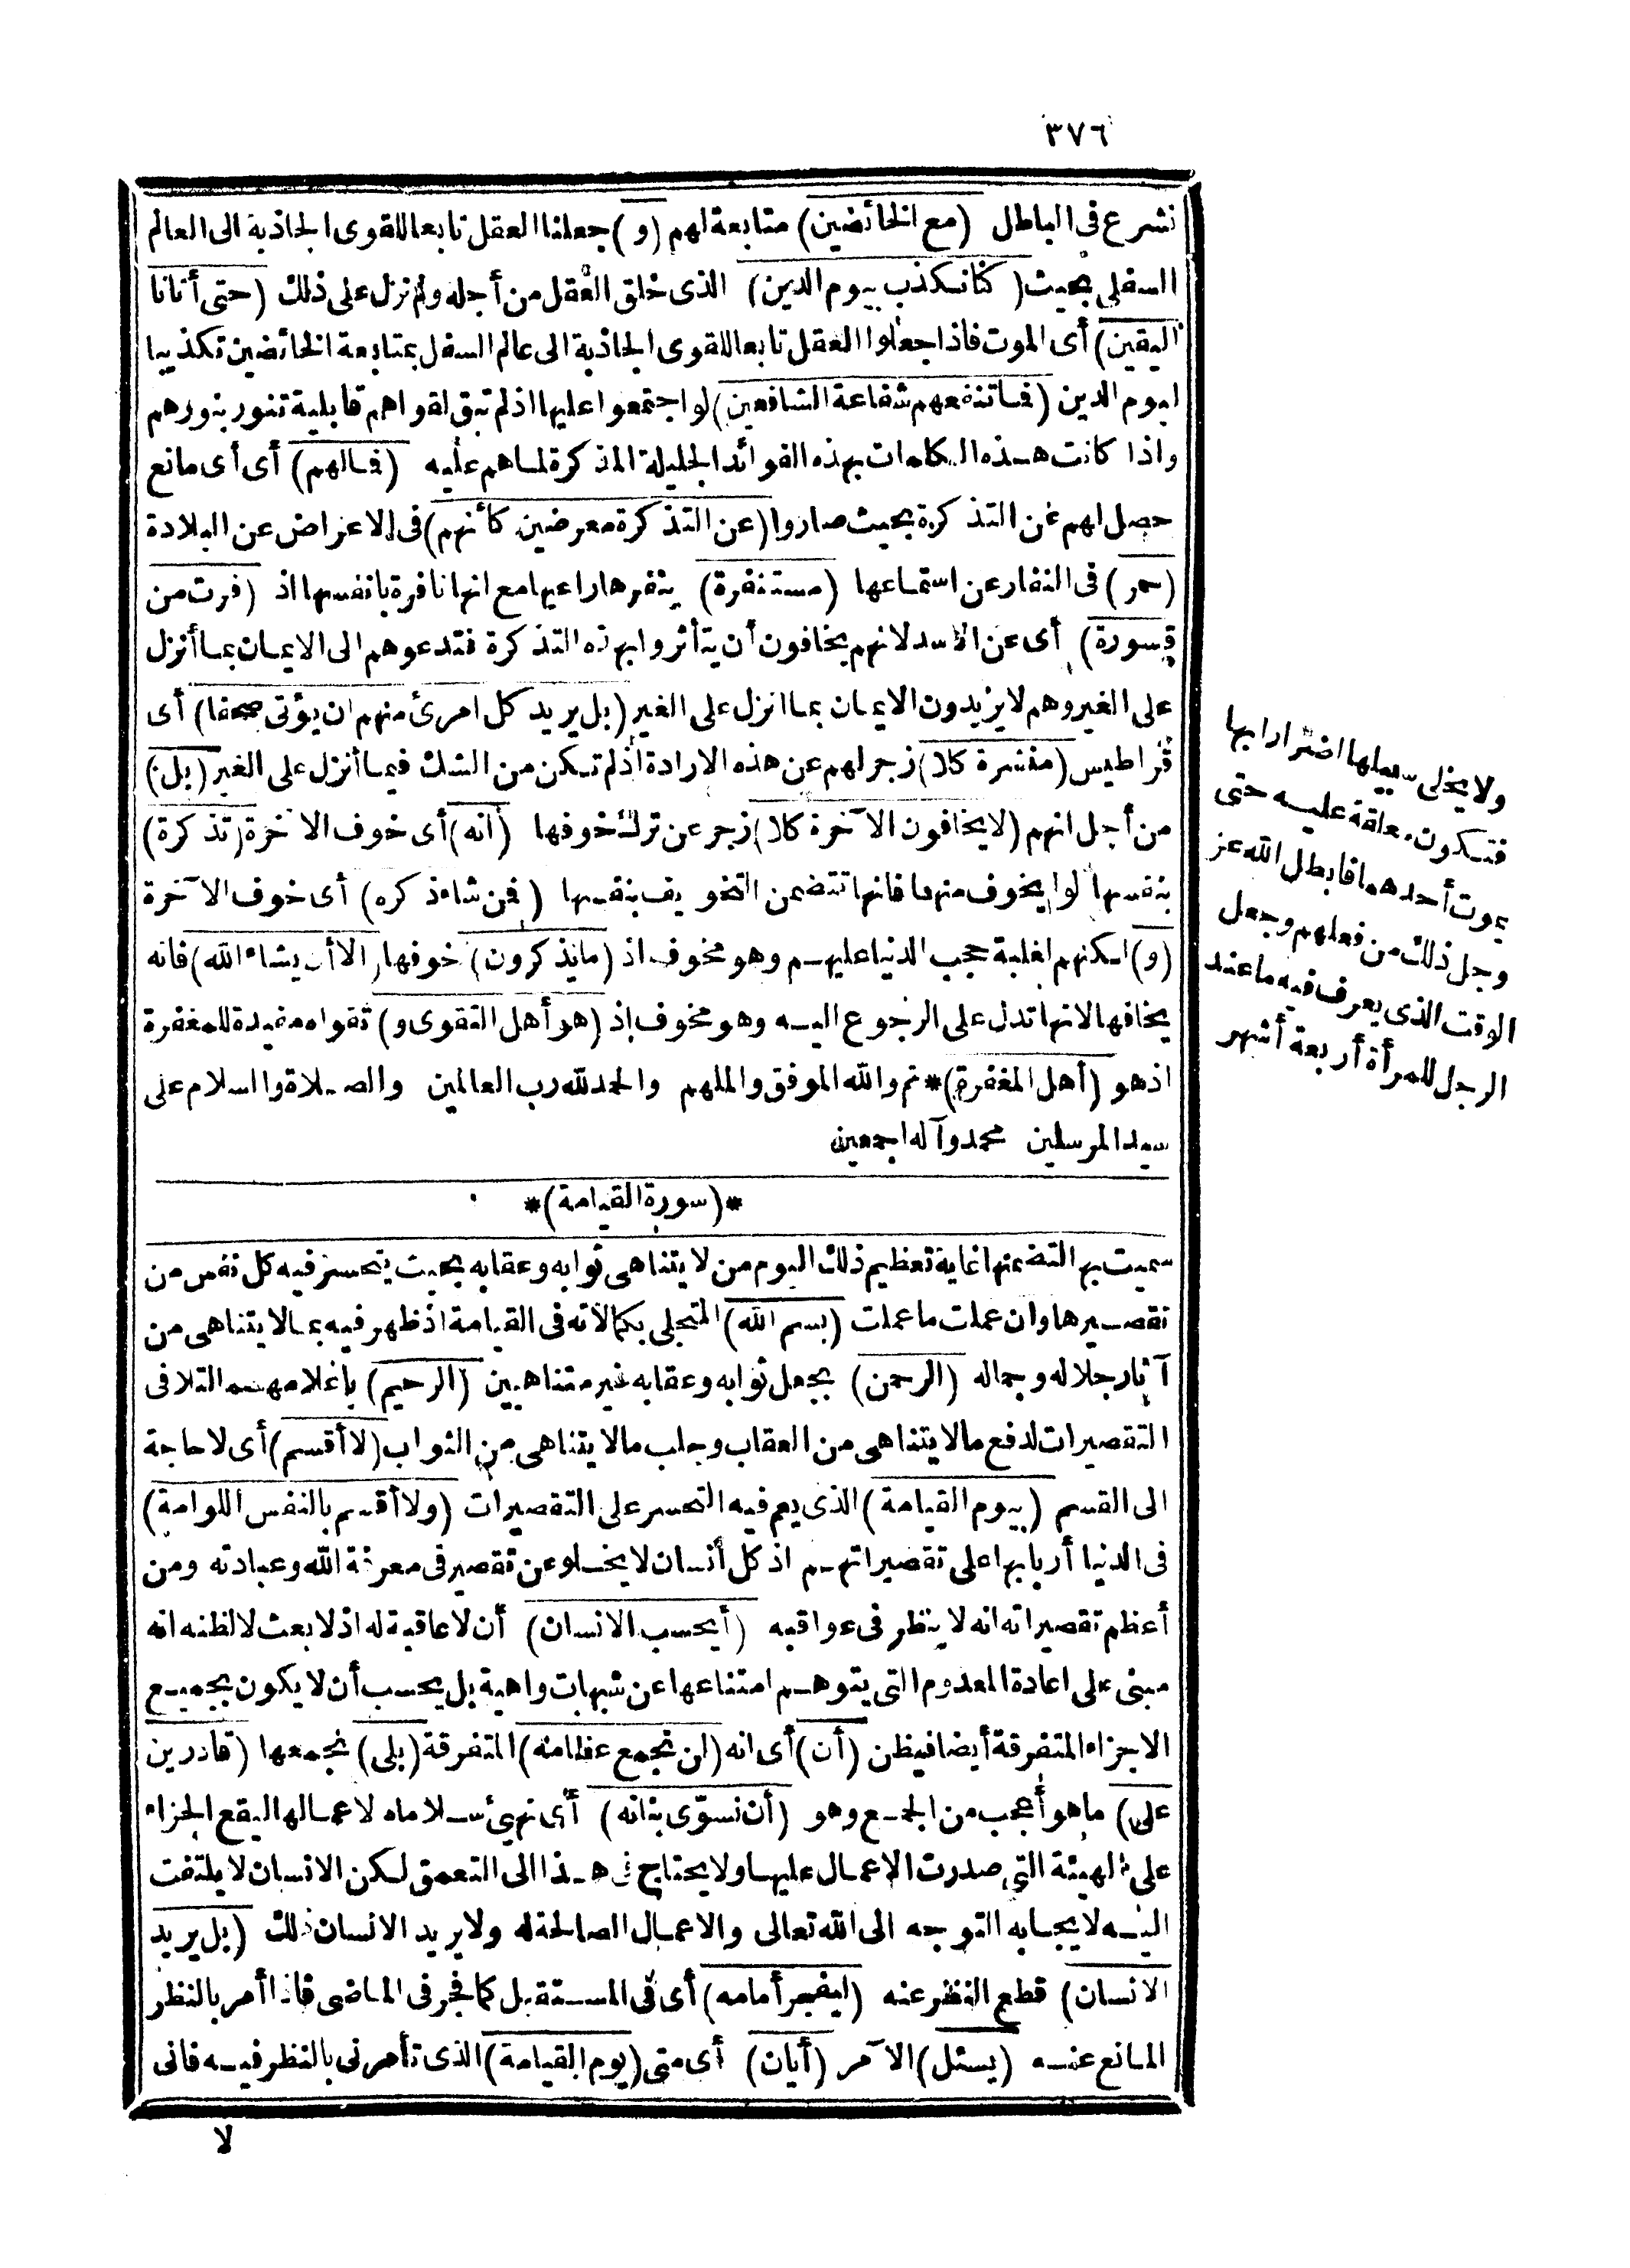 ٣٧٦
نشرع في الباطل (مع الخائضين) متابعة لهم (و) جعلنا العقل تابعا للقوى الجاذبة الى العالم
السفلى بحيث (كنا نكذب بيوم الدين) الذى خلق العقل من أجله ولم نزل على ذلك (حتى أتانا
اليقين) أى الموت فاذا جعلوا العقل تابعا للقوى الجاذبة الى عالم السفل بمتابعة الخائضين تكذيبا
ليوم الدين (فما تنفعهم شفاعة الشافعين) لو اجتمعوا عليها اذ لم تبق لقواهم قابلية تنور بنورهم
واذا كانت هذه الكلمات بهذه الفوائد الجليلة المذكرة لما هم عليه (فما لهم) أى أى مانع
حصل لهم عن التذكرة بحيث صاروا (عن التذكرة معرضين كأنهم) فى الاعراض عن البلادة
(حمر) فى النفار عن استماعها (مستنفرة) ينفرها راعيها مع انها نافرة بانفسها اذ (فرت من
قسورة) أى عن الاسد لانهم يخافون أن يتأثروا بهذه التذكرة فتدعوهم الى الايمان بما أنزل
على الغير وهم لا يزيدون الايمان بما انزل على الغير (بل يريد كل امرئ منهم ان يؤتى صحفا) أى
قراطيس (منشرة كلا) زجر لهم عن هذه الارادة اذ لم تكن من الشك فيما أنزل على الغير (بل)
من أجل انهم (لا يخافون الآخرة كلا) زجر عن ترك خوفها (انه) أى خوف الآخرة (تذكرة)
بنفسها لو لا يخوف منها فانها تتضمن التخويف بنفسها (فمن شاء ذكره) أى خوف الآخرة
(و) لكنهم لغلبة حجب الدنيا عليهم وهو مخوف اذ (ما يذكرون) خوفها (الا أن يشاء الله) فانه
يخافها لانها تدل على الرجوع اليه وهو مخوف اذ (هو أهل التقوى و) تقواه مفيدة للمغفرة
اذ هو (أهل المغفرة) * تم والله الموفق والملهم والحمد لله رب العالمين والصلاة والسلام على
سيد المرسلين محمد وآله اجمعين
*(سورة القيامة)*
سميت بها لتضمنها غاية تعظيم ذلك اليوم من لا يتناهى ثوابه وعقابه بحيث يتحسر فيه كل نفس من
تقصيرها وان عملت ما عملت (بسم الله) المتجلى بكمالاته فى القيامة اذ ظهر فيه بما لا يتناهى من
آثار جلاله وجماله (الرحمن) بجعل ثوابه وعقابه غير متناهيين (الرحيم) باعلامهم التلافى
التقصيرات لدفع ما لا يتناهى من العقاب وجلب ما لا يتناهى من الثواب (لا أقسم) أى لا حاجة
الى القسم (بيوم القيامة) الذى يعم فيه التحسر على التقصيرات (ولا أقسم بالنفس اللوامة)
فى الدنيا أربابها على تقصيراتهم اذ كل انسان لا يخلو عن تقصير فى معرفة الله وعبادته ومن
أعظم تقصيراته انه لا ينظر فى عواقبه (أيحسب الانسان) أن لا عاقبة له اذ لا بعث لا لظنه انه
مبنى على اعادة المعدوم التى يتوهم امتناعها عن شبهات واهية بل يحسب أن لا يكون بجميع
الاجزاء المتفرقة أيضا فيظن (أن) أى انه (لن نجمع عظامه) المتفرقة (بلى) نجمعها (قادرين
على) ما هو أعجب من الجمع وهو (أن نسوّى بنانه) أى نهيئ سلاماه لاعمالها ليقع الجزاء
على الهيئة التى صدرت الاعمال عليها ولا يحتاج فى هذا الى التعمق لكن الانسان لا يلتفت
اليه لايجابه التوجه الى الله تعالى والاعمال الصالحة له ولا يريد الانسان ذلك (بل يريد
الانسان) قطع النظر عنه (ليفجر أمامه) أى فى المستقبل كما فجر فى الماضى فاذا أمر بالنظر
المانع عنه (يسئل) الآمر (أيان) أى متى (يوم القيامة) الذى تأمرنى بالنظر فيه فانى
لا
ولا يخلى سبيلها اضرارا بها
فتكون معلقة عليه حتى
يموت أحدهما فابطل الله عز
وجل ذلك من فعلهم وجعل
الوقت الذى يعرف فيه ما عند
الرجل للمرأة أربعة أشهر